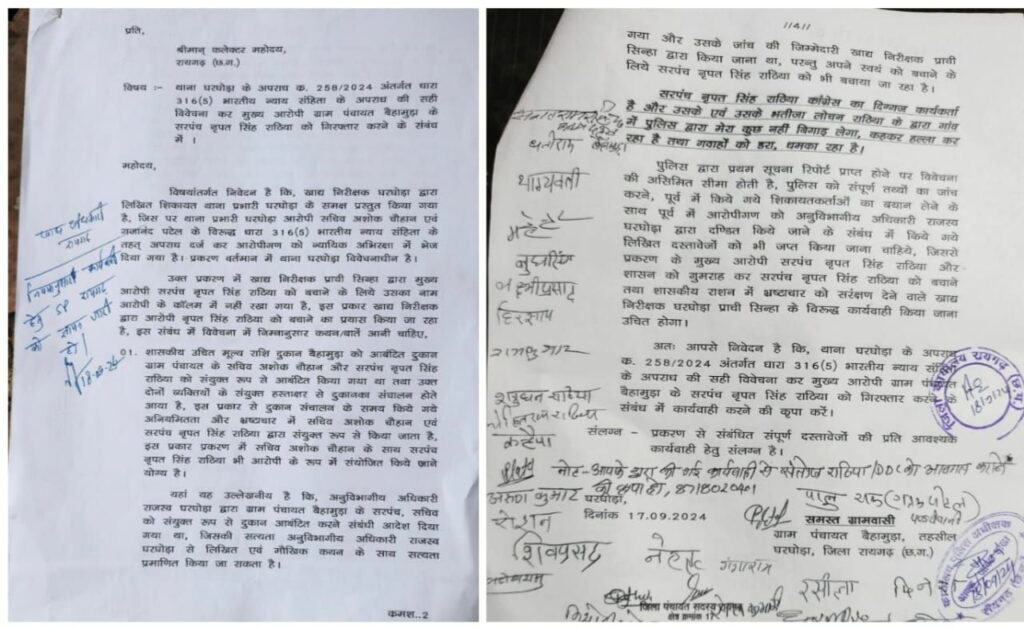 प्रति,
श्रीमान् कलेक्टर महोदय,
रायगढ़ (छ.ग.)
विषय :- थाना घरघोड़ा के अपराध क. 258/2024 अंतर्गत धारा
316(5) भारतीय न्याय संहिता के अपराध की सही
विवेचना कर मुख्य आरोपी ग्राम पंचायत बैहामुड़ा के
सरपंच नृपत सिंह राठिया को गिरफ्तार करने के संबंध
में ।
महोदय,
विषयांतर्गत निवेदन है कि, खाद्य निरीक्षक घरघोड़ा द्वारा
लिखित शिकायत थाना प्रभारी घरघोड़ा के समक्ष प्रस्तुत किया गया
है, जिस पर थाना प्रभारी घरघोड़ा आरोपी सचिव अशोक चौहान एवं
गजानंद पटेल के विरूद्ध धारा 316(5) भारतीय न्याय संहिता के
तहत् अपराध दर्ज कर आरोपीगण को न्यायिक अभिरक्षा में भेज
दिया गया है। प्रकरण वर्तमान में थाना घरघोड़ा विवेचनाधीन है।
उक्त प्रकरण में खाद्य निरीक्षक प्राची सिन्हा द्वारा मुख्य
आरोपी सरपंच नृपत सिंह राठिया को बचाने के लिये उसका नाम
आरोपी के कॉलम में नही रखा गया है, इस प्रकार खाद्य निरीक्षक
द्वारा आरोपी नृपत सिंह राठिया को बचाने का प्रयास किया जा रहा
है, इस संबंध में विवेचना में निम्नानुसार कथन/बातें आनी चाहिए,
01. शासकीय उचित मूल्य राशि दुकान बैहामुड़ा को आबंटित दुकान
ग्राम पंचायत के सचिव अशोक चौहान और सरपंच नृपत सिंह
राठिया को संयुक्त रूप से आबंटित किया गया था तथा उक्त
दोनों व्यक्तियों के संयुक्त हस्ताक्षर से दुकानका संचालन होते
आया है, इस प्रकार से दुकान संचालन के समय किये गये
अनियमितता और भ्रष्टाचार में सचिव अशोक चौहान एवं
सरपंच नृपत सिंह राठिया द्वारा संयुक्त रूप से किया जाता है,
इस प्रकार प्रकरण में सचिव अशोक चौहान के साथ सरपंच
नृपत सिंह राठिया भी आरोपी के रूप में संयोजित किये जाने
योग्य है।
यहां यह उल्लेखनीय है कि, अनुविभागीय अधिकारी
राजस्व घरघोड़ा द्वारा ग्राम पंचायत बैहामुड़ा के सरपंच, सचिव
को संयुक्त रूप से दुकान आबंटित करने संबंधी आदेश दिया
गया था, जिसकी सत्यता अनुविभागीय अधिकारी राजस्व
घरघोड़ा से लिखित एवं मौखिक कथन के साथ सत्यता
प्रमाणित किया जा सकता है।
क्रमश..2
//4//
गया और उसके जांच की जिम्मेदारी खाद्य निरीक्षक प्राची
सिन्हा द्वारा किया जाना था, परन्तु अपने स्वर्थ को बचाने के
लिये सरपंच नृपत सिंह राठिया को भी बचाया जा रहा है।
सरपंच नृपत सिंह राठिया कांग्रेस का दिग्गज कार्यकर्ता
है और उसके एवं उसके भतीजा लोचन राठिया के द्वारा गांव
में पुलिस द्वारा मेरा कुछ नही बिगाड़ लेगा, कहकर हल्ला कर
रहा है तथा गवाहों को डरा, धमका रहा है।
पुलिस द्वारा प्रथम सूचना रिपोर्ट प्राप्त होने पर विवेचना
की असिमित सीमा होती है, पुलिस को संपूर्ण तथ्यों का जांच
करने, पूर्व में किये गये शिकायतकर्ताओं का बयान लेने के
साथ पूर्व में आरोपीगण को अनुविभागीय अधिकारी राजस्व
घरघोड़ा द्वारा दण्डित किये जाने के संबंध में किये गये
लिखित दस्तावेजों को भी जप्त किया जाना चाहिये, जिससे
प्रकरण के मुख्य आरोपी सरपंच नृपत सिंह राठिया और
शासन को गुमराह कर सरपंच नृपत सिंह राठिया को बचाने
तथा शासकीय राशन में भ्रष्टाचार को सरंक्षण देने वाले खाद्य
निरीक्षक घरघोड़ा प्राची सिन्हा के विरूद्ध कार्यवाही किया जाना
उचित होगा।
अतः आपसे निवेदन है कि, थाना घरघोड़ा के अपराध
क. 258/2024 अंतर्गत धारा 316(5) भारतीय न्याय
के अपराध की सही विवेचना कर मुख्य आरोपी ग्राम
बैहामुड़ा के सरपंच नृपत सिंह राठिया को गिरफ्तार करने के
संबंध में कार्यवाही करने की कृपा करें।
संलग्न - प्रकरण से संबंधित संपूर्ण दस्तावेजों की प्रति आवश्यक
कार्यवाही हेतु संलग्न है।
घरघोड़ा,
दिनांक 17.09.2024
समस्त ग्रामवासी
ग्राम पंचायत बैहामुड़ा, तहसील
घरघोड़ा, जिला रायगढ़ (छ.ग.)
शिवप्रसाद
रसीला
जिला पंचायत सदस्य